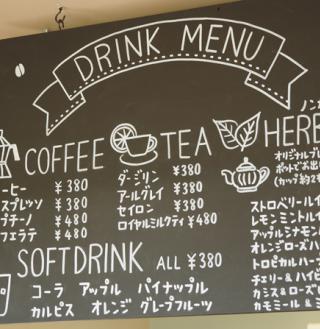 DRINK MENU
COFFEE
ーヒー ¥380
スプレッソ ¥380
プチーノ ¥480
フェラテ ¥480
TEA
ダージリン ¥380
アールグレイ ¥380
セイロン ¥380
ロイヤルミルクティ ¥480
HERB
ノンカ
オリジナルブレ
ポットでお出し
(カップ約2
ストロベリールイ
レモンミントルイ
アップルシナモン
オレンジローズハ
トロピカルハー
チェリー&ハイビ
カシス&ローズヒ
カモミール&ミ
SOFT DRINK ALL ¥380
コーラ アップル パイナップル
カルピス オレンジ グレープフルーツ